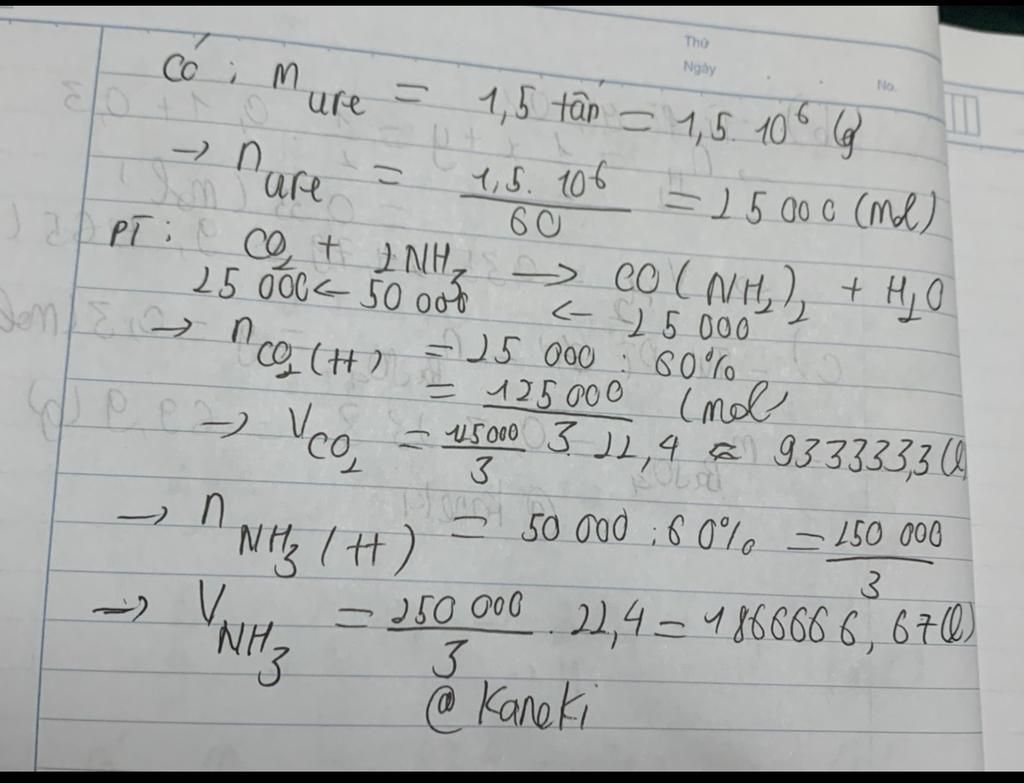 Thứ
Ngày
No.
Có : m ure = 1,5 tấn = 1,5. 10⁶ (g)
→ n ure = 1,5. 10⁶ / 60 = 25 000 (mol)
PT : CO₂ + 2NH₃ → CO(NH₂)₂ + H₂O
25 000 ← 50 000 ← 25 000
→ n CO₂ (H) = 25 000 : 60%
= 125 000 / 3 (mol)
→ V CO₂ = 125000 / 3 . 22,4 ≈ 933333,3 (l)
→ n NH₃ (H) = 50 000 : 60% = 250 000 / 3
→ V NH₃ = 250 000 / 3 . 22,4 = 1866666,67 (l)
@ Kaneki